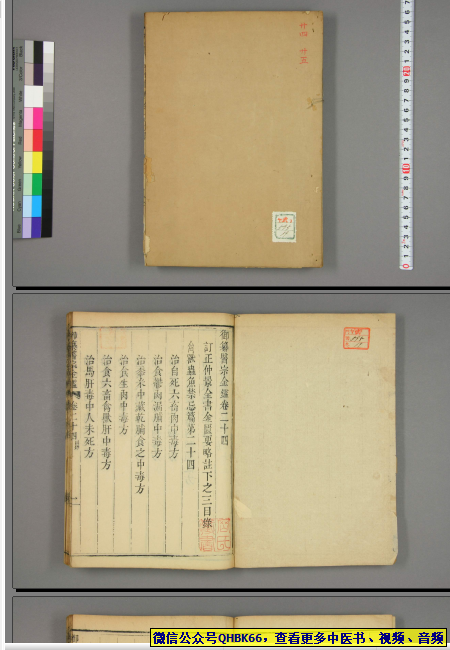 廿四 廿五
御纂醫宗金鑑卷二十四
訂正仲景全書金匱要略註下之三目錄
禽獸蟲魚禁忌篇第二十四
治自死六畜肉中毒方
治食鬱肉漏脯中毒方
治黍米中藏乾脯食之中毒方
治食生肉中毒方
治食六畜鳥獸肝中毒方
治馬肝毒中人未死方
微信公众号QHBK66，查看更多中医书、视频、音频